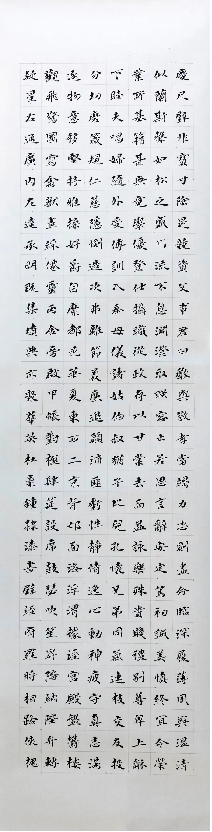 慶尺璧非寶寸陰是競資父事君曰嚴與敬孝當竭力忠則盡命臨深履薄夙興溫清
似蘭斯馨如松之盛川流不息淵澄取暎容止若思言辭安定篤初誠美慎終宜令榮
業所基籍甚無竟學優登仕攝職從政存以甘棠去而益詠樂殊貴賤禮別尊卑上龢
下睦夫唱婦隨外受傅訓入奉母儀諸姑伯叔猶子比兒孔懷兄弟同氣連枝交友投
分切磨箴規仁慈隱惻造次弗離節義廉退顛沛匪虧性靜情逸心動神疲守真志滿
逐物意移堅持雅操好爵自縻都邑華夏東西二京背邙面洛浮渭據涇宮殿盤鬱樓
觀飛驚圖寫禽獸畫彩僊靈丙舍傍啟甲帳對楹肆筵設席鼓瑟吹笙升階納陛弁轉
疑星右通廣內左達承明既集墳典亦聚群英杜稾鍾隸漆書壁經府羅將相路俠槐